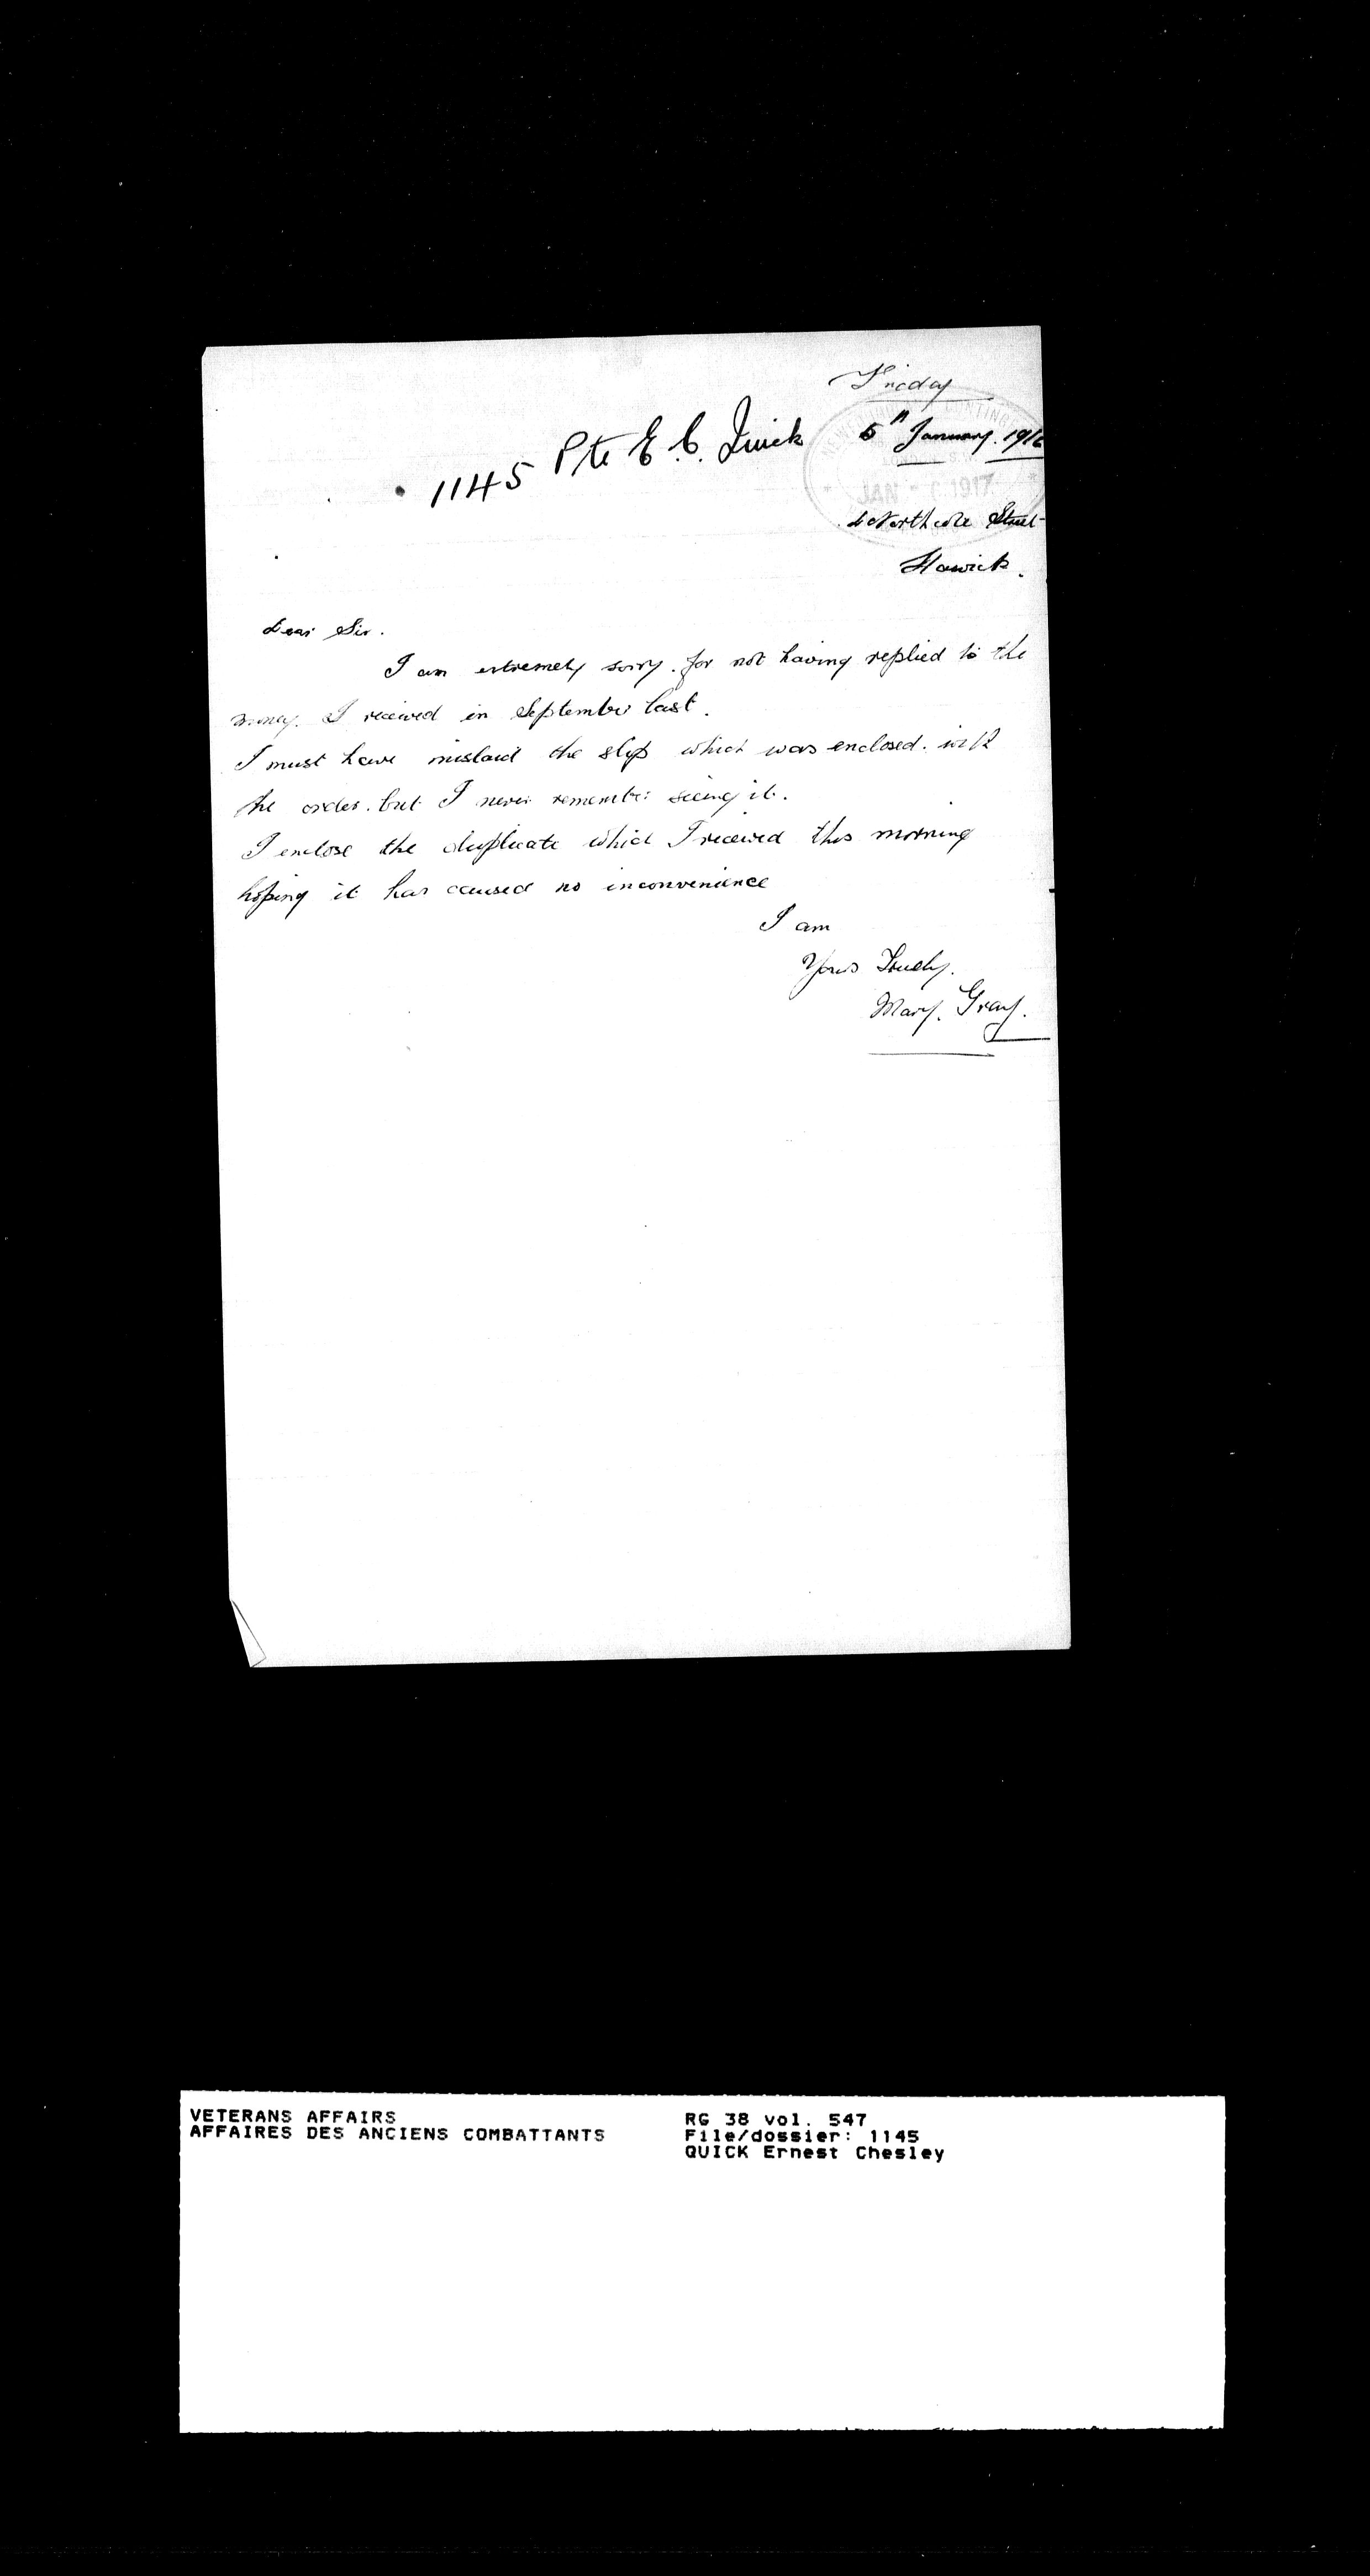 Friday
5th January. 1916
1145 Pte E. C. Quick
NEWFOUNDLAND CONTINGENT
LONDON, S.W.
JAN - 6 1917
Northcote Street
Hawick.
Dear Sir.
I am extremely sorry. for not having replied to the
money. I received in September last.
I must have mislaid the slip which was enclosed. with
the order. but I never remember seeing it.
I enclose the duplicate which I received this morning
hoping it has caused no inconvenience
I am
Yours Truely.
Mary. Gray.
VETERANS AFFAIRS
AFFAIRES DES ANCIENS COMBATTANTS
RG 38 vol. 547
File/dossier: 1145
QUICK Ernest Chesley